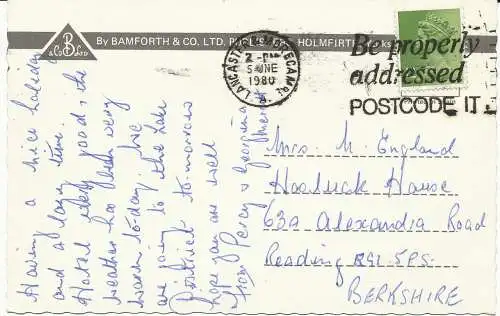 B
& Co Ltd
By BAMFORTH & CO. LTD. PUBLISHERS HOLMFIRTH
LANCASTER MORECAMBE
2 - PM
5 JNE
1980
Be properly
addressed
POSTCODE IT
Having a nice holiday
and a lazy time.
Hotel very good, the
weather has been very
warm to-day. We
are going to the Lake
District to-morrow
hope you are well
from Percy & Georgina
Mrs. M. England
Hasluck House
63a Alexandra Road
Reading RG1 5PS
BERKSHIRE